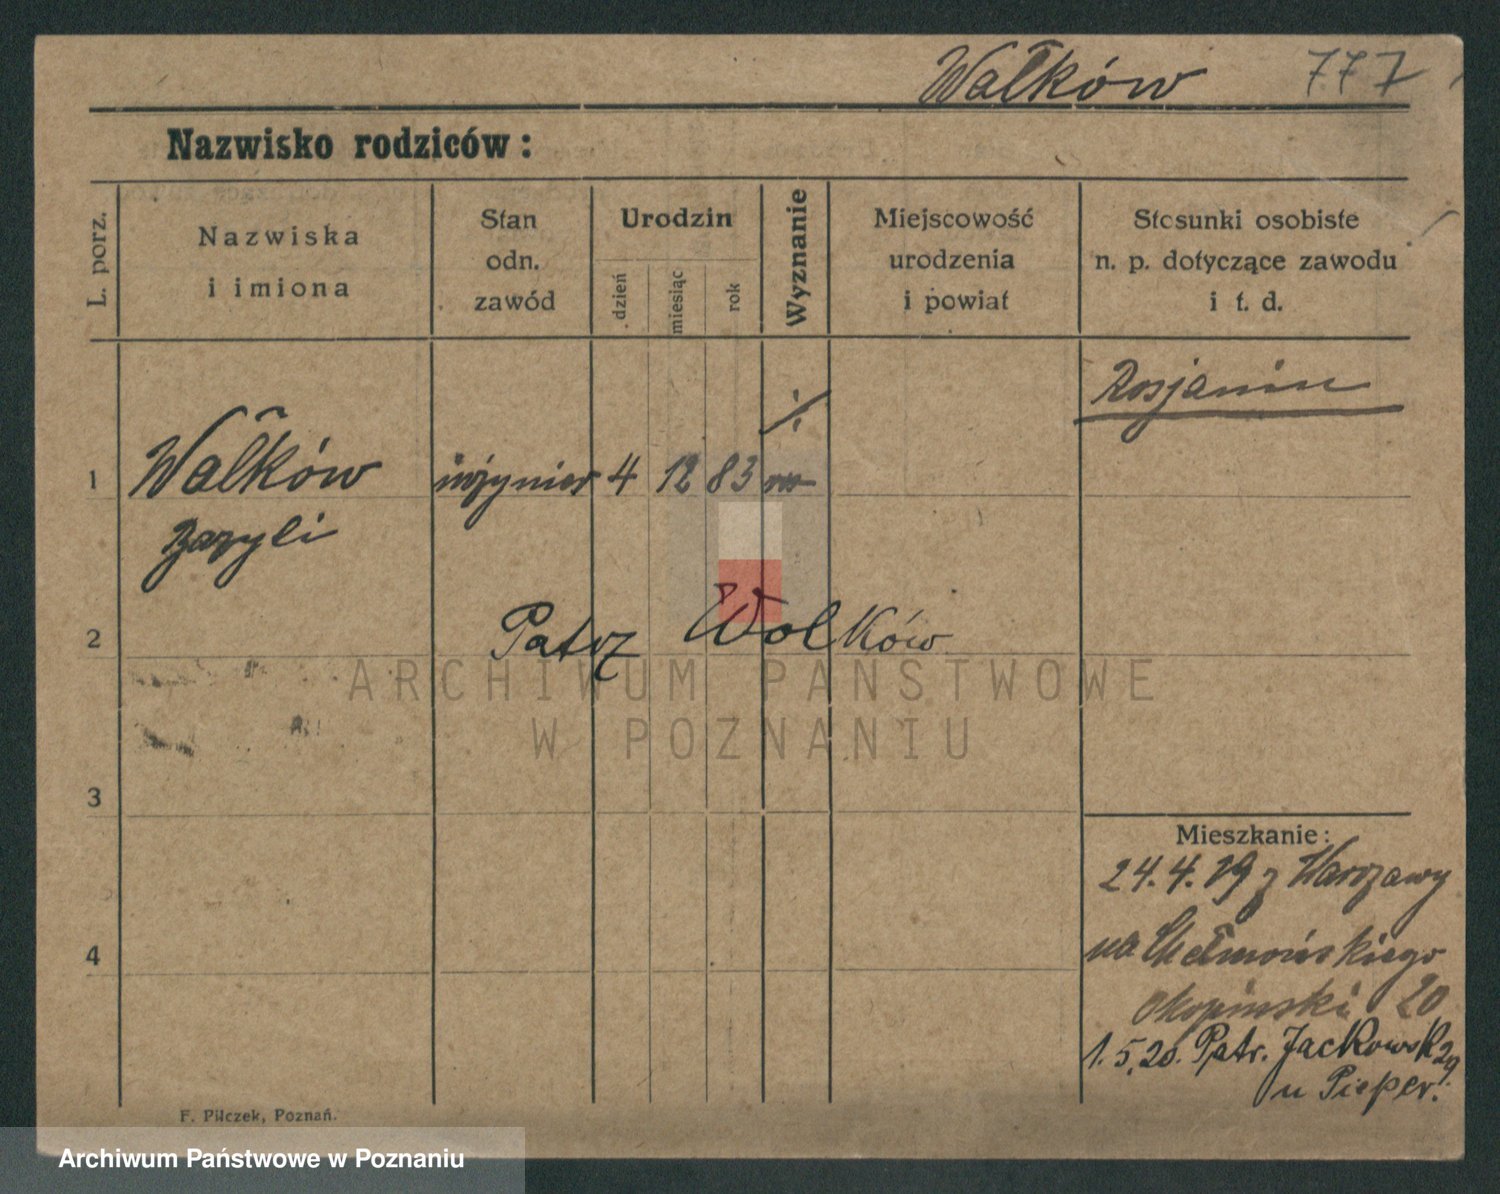 Wałków 777
Nazwisko rodziców:
L. porz.
Nazwiska
i imiona
Stan
odn.
zawód
Urodzin
dzień
miesiąc
rok
Wyznanie
Miejscowość
urodzenia
i powiat
Stosunki osobiste
n. p. dotyczące zawodu
i t. d.
Rosjanin
1 Wałków inżynier 4 12 83
Bazyli
2 Patrz Wolków
ARCHIWUM PAŃSTWOWE
W POZNANIU
3
Mieszkanie:
24.4.19 z Warszawy
4 na Chełmońskiego
20
1.5.20. Patr. Jackowsk 29.
u Pieper.
F. Pilczek, Poznań.
Archiwum Państwowe w Poznaniu